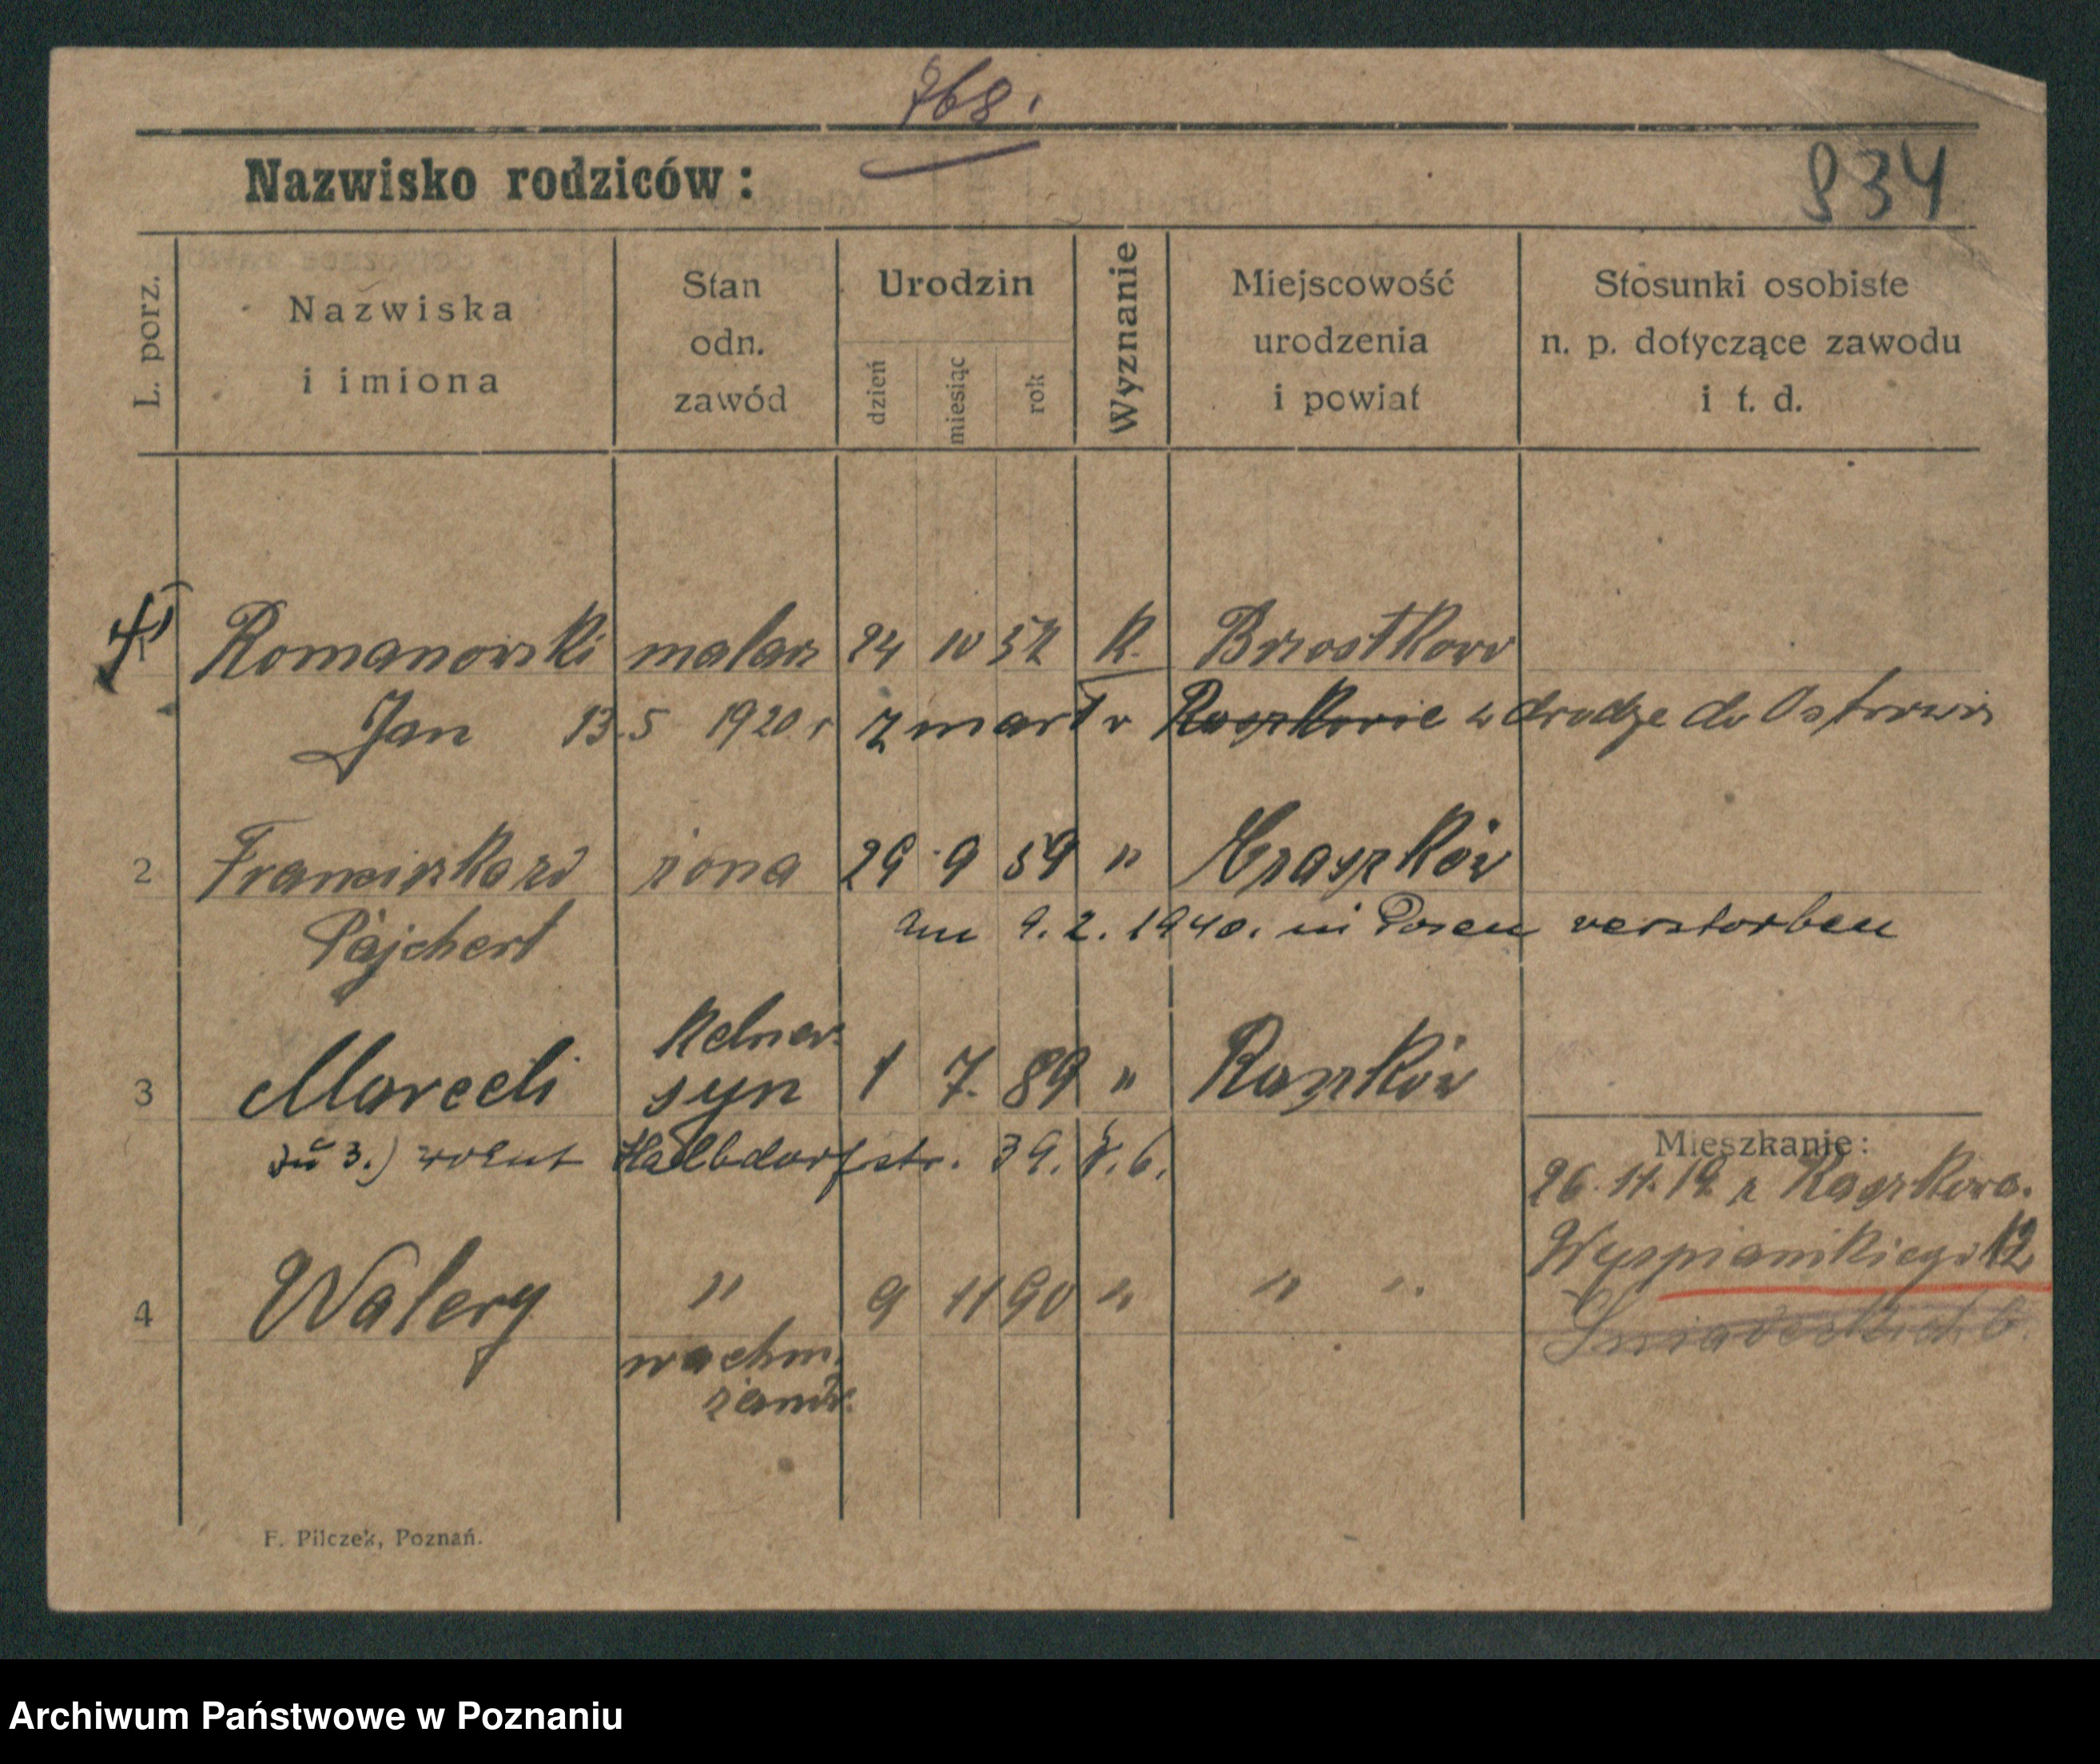 768.
Nazwisko rodziców:
934
L. porz.
Nazwiska
i imiona
Stan
odn.
zawód
Urodzin
dzień
miesiąc
rok
Wyznanie
Miejscowość
urodzenia
i powiat
Stosunki osobiste
n. p. dotyczące zawodu
i t. d.
Romanowski malarz 24 10 52 K. Brzostkow
Jan 13.5 1920 r zmarł w Raszkowie w drodze do Ostrowa
2 Franciszka zd żona 29 9 59 " Kraszków
Pajchert
am 9.2.1940. in Posen verstorben
Kelner
3 Marceli syn 1 7. 89 " Raszków
zu 3.) wohnt Halbdorfstr. 39. W. 6.
Mieszkanie:
26.11.19 z Raszkowa.
Wyspianskiego 12
4 Walery " 9 11 90 " " "
Sniadeckich 6.
wachm.
żand.
F. Pilczek, Poznań.
Archiwum Państwowe w Poznaniu